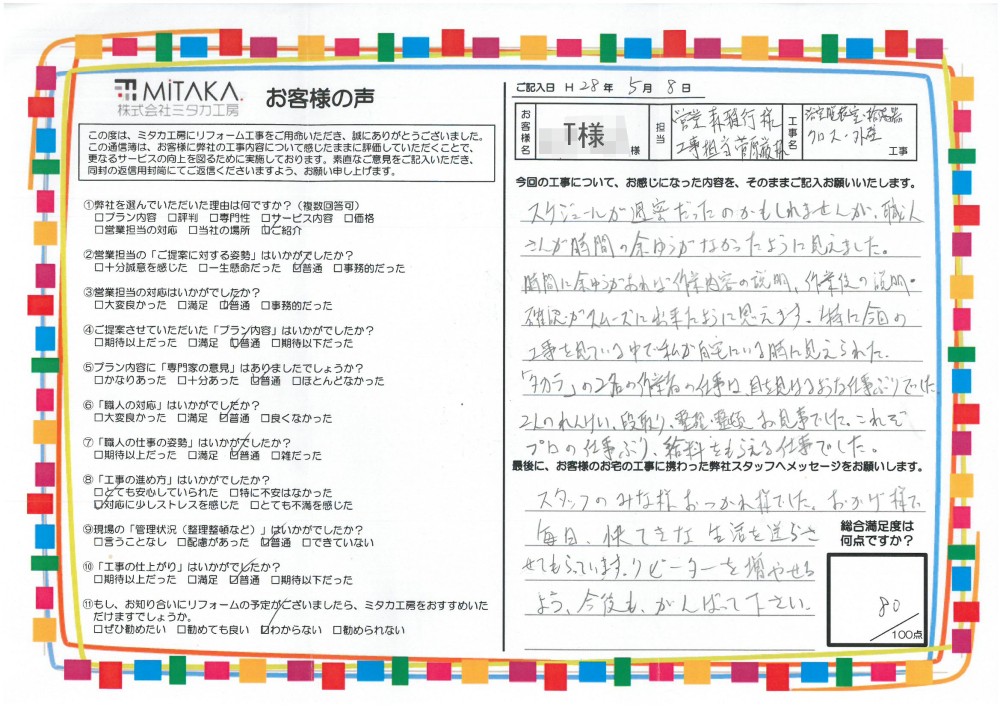 MiTAKA
株式会社ミタカ工房
お客様の声
この度は、ミタカ工房にリフォーム工事をご用命いただき、誠にありがとうございました。
この通信簿は、お客様に弊社の工事内容について感じたままに評価していただくことで、
更なるサービスの向上を図るために実施しております。素直なご意見をご記入いただき、
同封の返信用封筒にてご返信くださいますよう、お願い申し上げます。
①弊社を選んでいただいた理由は何ですか？（複数回答可）
□プラン内容 □評判 □専門性 □サービス内容 □価格
□営業担当の対応 □当社の場所 ☑ご紹介
②営業担当の「ご提案に対する姿勢」はいかがでしたか？
□十分誠意を感じた □一生懸命だった ☑普通 □事務的だった
③営業担当の対応はいかがでしたか？
□大変良かった □満足 ☑普通 □事務的だった
④ご提案させていただいた「プラン内容」はいかがでしたか？
□期待以上だった □満足 ☑普通 □期待以下だった
⑤プラン内容に「専門家の意見」はありましたでしょうか？
□かなりあった □十分あった ☑普通 □ほとんどなかった
⑥「職人の対応」はいかがでしたか？
□大変良かった □満足 ☑普通 □良くなかった
⑦「職人の仕事の姿勢」はいかがでしたか？
□期待以上だった □満足 ☑普通 □雑だった
⑧「工事の進め方」はいかがでしたか？
□とても安心していられた □特に不安はなかった
☑対応に少しストレスを感じた □とても不満を感じた
⑨現場の「管理状況（整理整頓など）」はいかがでしたか？
□言うことなし □配慮があった ☑普通 □できていない
⑩「工事の仕上がり」はいかがでしたか？
□期待以上だった □満足 ☑普通 □期待以下だった
⑪もし、お知り合いにリフォームの予定がございましたら、ミタカ工房をおすすめいた
だけますでしょうか。
□ぜひ勧めたい □勧めても良い ☑わからない □勧められない
ご記入日 H 28年 5月 8日
お客様名 T様 様
担当 営業 森 様
工事担当 様
工事名 浴室 洗面室・給湯器
クロス・外壁 工事
今回の工事について、お感じになった内容を、そのままご記入お願いいたします。
スケジュールが過密だったのかもしれませんが、職人
さんが時間の余ゆうがなかったように見えました。
時間に余ゆうがあれば作業内容の説明、作業後の説明・
確認がスムーズに出来たように思えます。特に今回の
工事を見ている中で私が自宅にいる時に見えられた、
「タカラ」の2名の作業者の仕事は、目を見はるような仕事ぶりでした。
2人のれんけい、段取り、整理・整頓 お見事でした。これぞ
プロの仕事ぶり、給料をもらえる仕事でした。
最後に、お客様のお宅の工事に携わった弊社スタッフへメッセージをお願いします。
スタッフのみな様 おつかれ様でした。おかげ様で
毎日、快てきな生活を送らさ
せてもらっています。リピーターを増やせる
よう、今後も、がんばって下さい。
総合満足度は
何点ですか？
80
／100点